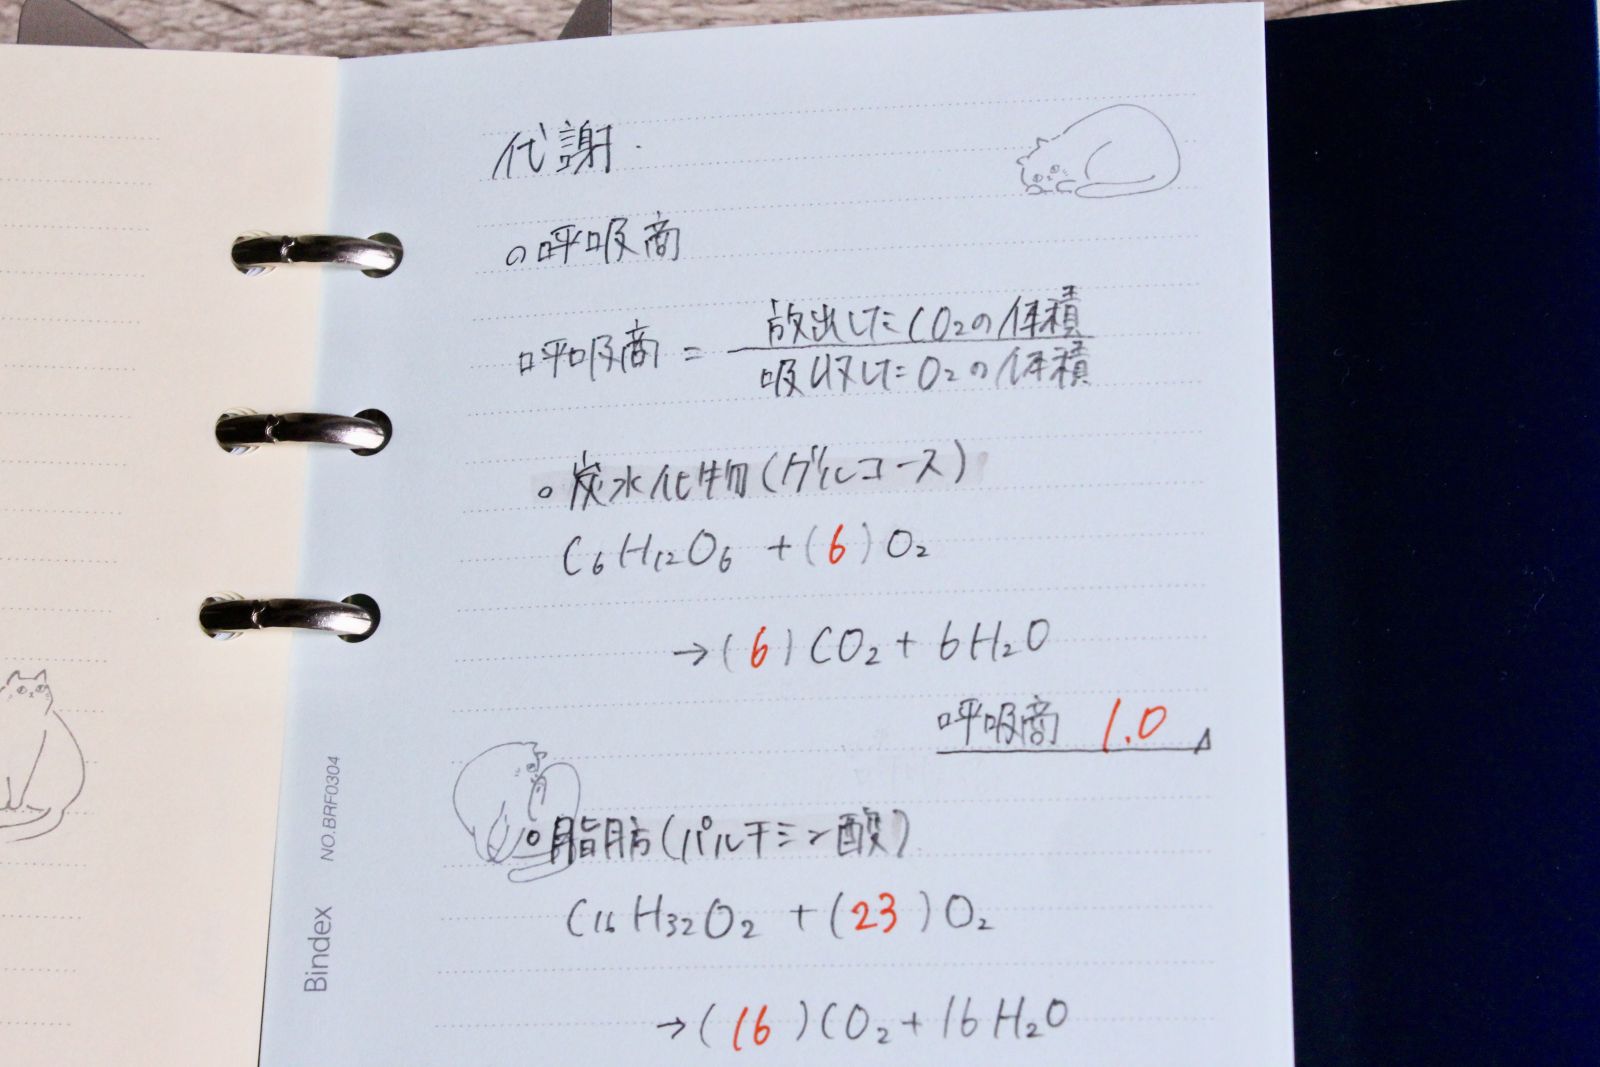 代謝.
○呼吸商
呼吸商 = 放出したCO₂の体積
吸収したO₂の体積
○炭水化物(グルコース)
C₆H₁₂O₆ + (6)O₂
→(6)CO₂ + 6H₂O
呼吸商 1.0
○脂肪(パルチミン酸)
C₁₆H₃₂O₂ + (23)O₂
→(16)CO₂ + 16H₂O
Bindex NO.BRF0304